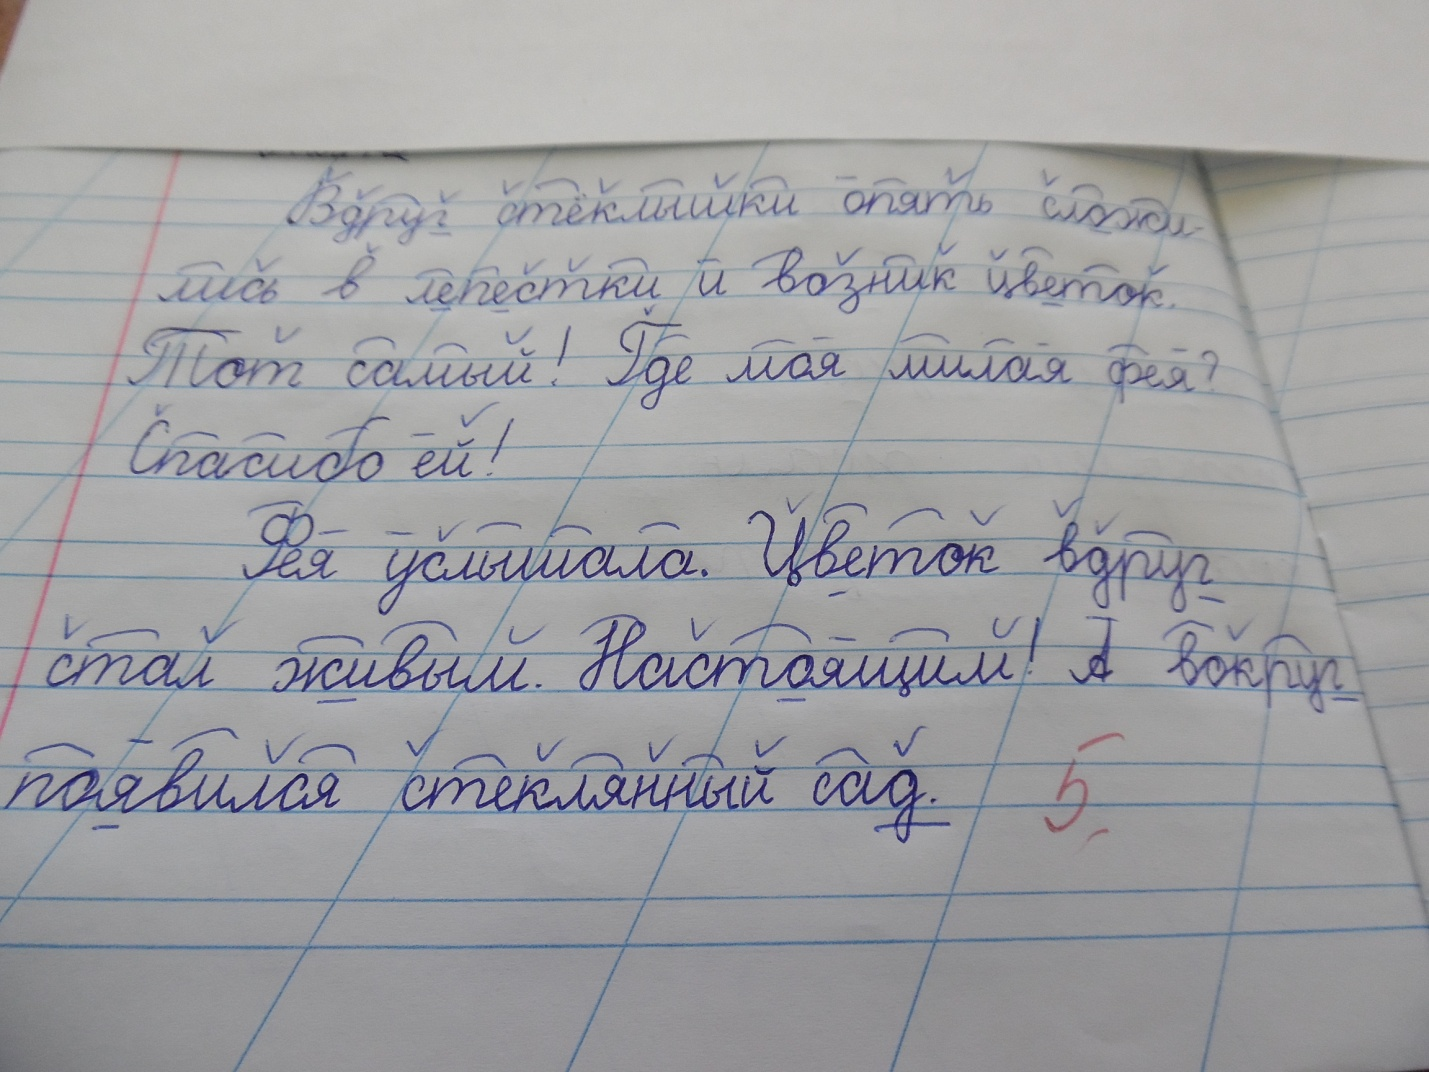 Вдруг стёклышки опять сложи-
лись в лепестки и возник цветок.
Тот самый! Где моя милая фея?
Спасибо ей!
Фея услышала. Цветок вдруг
стал живым. Настоящим! А вокруг
появился стеклянный сад.
5